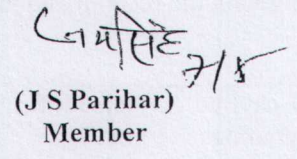 जयसिंह
(J S Parihar)
Member